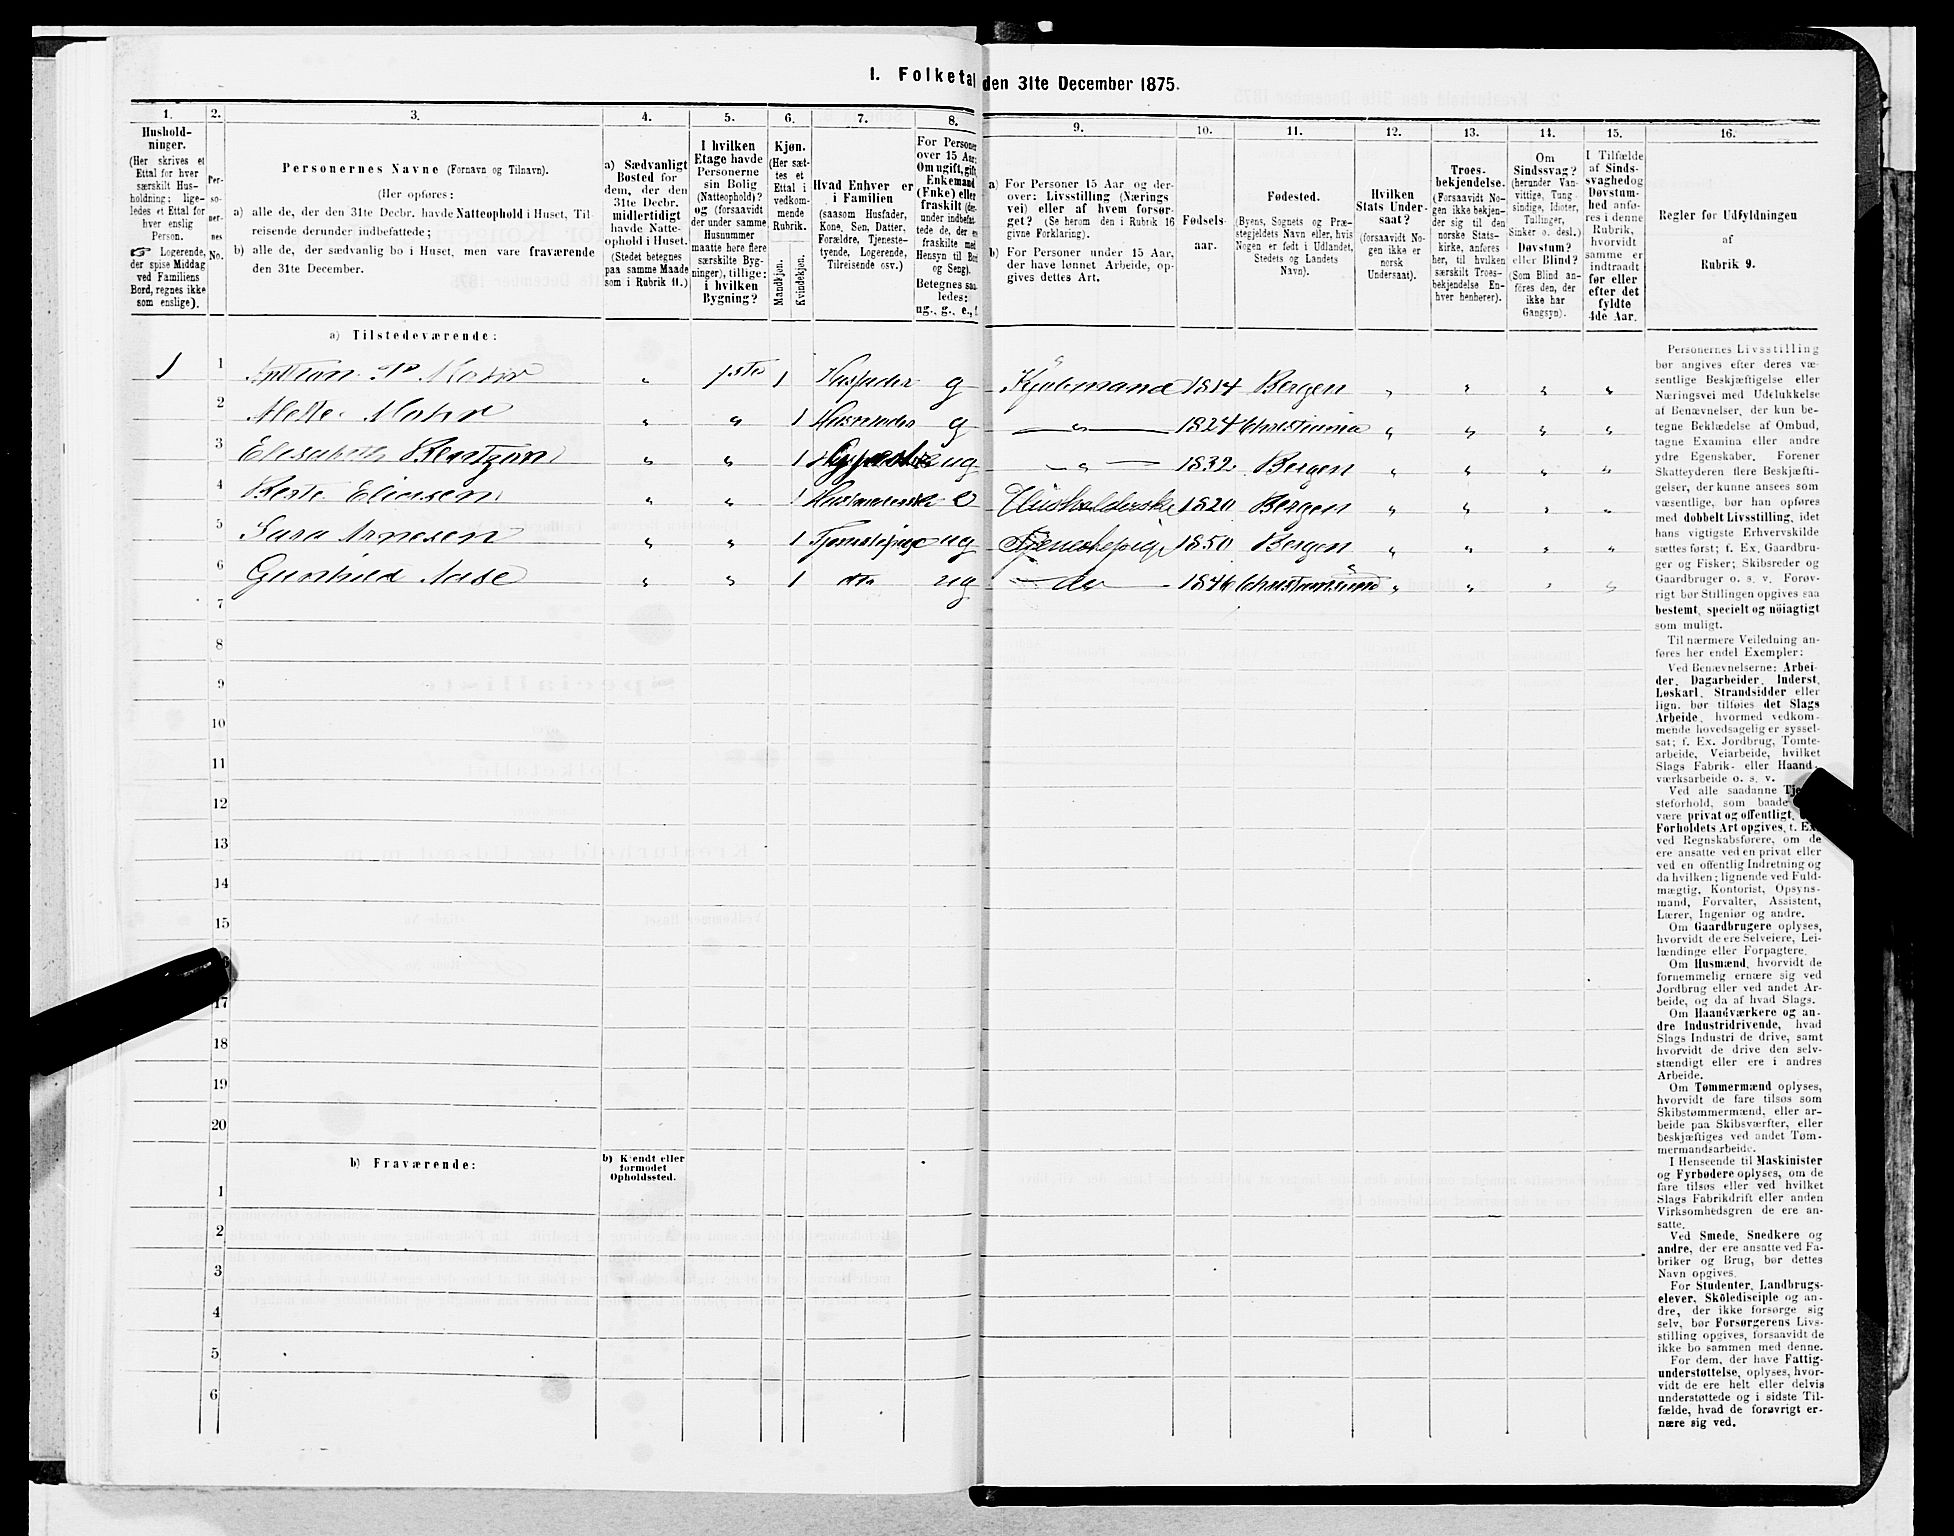 1. Folketal den 31te December 1875.
1. 2. 3. 4. 5. 6. 7. 8. 9. 10. 11. 12. 13. 14. 15. 16.
Hushold-
ninger.
(Her skrives et
Ettal for hver
særskilt Hus-
holdning; lige-
ledes et Ettal for
hver enslig
Person.
☞ Logerende,
der spise Middag
ved Familiens
Bord, regnes ikke
som enslige).
Per-
so-
ner-
nes
No.
Personernes Navne (Fornavn og Tilnavn).
(Her opføres:
a) alle de, der den 31te Decbr. havde Natteophold i Huset, Til-
reisende derunder indbefattede;
b) alle de, der sædvanlig bo i Huset, men vare fraværende
den 31te December.
a) Sædvanligt
Bosted for
dem, der den
31te Decbr.
midlertidigt
havde Natte-
ophold i Huset.
(Stedet betegnes
paa samme Maade
som i Rubrik 11.)
I hvilken
Etage havde
Personerne
sin Bolig
(Natteophold)?
og (forsaavidt
der under samme
Husnummer
maatte høre flere
særskilte Byg-
ninger), tillige:
i hvilken
Bygning?
Kjøn.
(Her sæt-
tes et
Ettal i
vedkom-
mende
Rubrik.
Mandkjøn.
Kvindekjøn.
Hvad Enhver er
i Familien
(saasom Husfader,
Kone, Søn, Datter,
Forældre, Tjeneste-
tyende, Logerende,
Tilreisende osv.)
For Personer
over 15 Aar:
Om ugift, gift,
Enkemand
(Enke) eller
fraskilt (der-
under indbefat-
tede de, der er
fraskilte med
Hensyn til Bord
og Seng).
Betegnes saa-
ledes:
ug., g., e., f.
a) For Personer 15 Aar og der-
over: Livsstilling (Nærings
vei) eller af hvem forsør-
get? (Se herom den i Rubrik 16
givne Forklaring).
b) For Personer under 15 Aar,
der have lønnet Arbeide, op-
gives dettes Art.
Fødsels-
aar.
Fødested.
(Byens, Sognets og Præ-
stegjeldets Navn eller, hvis
Nogen er født i Udlandet,
Stedets og Landets
Navn).
Hvilken
Stats Under-
saat?
(forsaavidt No-
gen ikke er
norsk
Undersaat).
Troes-
bekjendelse.
(Forsaavidt No-
gen ikke bekjen-
der sig til den
norske Stats-
kirke, anføres
her, til hvilken
særskilt Troes-
bekjendelse En-
hver henhører).
Om
Sindssvag?
(herunder Van-
vittige, Tung-
sindige, Idioter,
Tullinger,
Sinker o. desl.)
Døvstum?
eller Blind?
(Som Blind an-
føres den, der
ikke har
Gangsyn).
I Tilfælde
af Sinds-
svaghed og
Døvstum-
hed anfø-
res i denne
Rubrik,
hvorvidt
samme er
indtraadt
før eller
efter det
fyldte
4de Aar.
Regler før Udfyldningen
af
Rubrik 9.
a) Tilstedeværende:
1 1 Mohr " 1ste 1 Husfader g Kjøbmand 1814 Bergen " " " "
2 Mette Mohr " " 1 g " 1824 Christiania " " " "
3 Elisabeth " " 1 ug " 1832 Bergen " " " "
4 Berte Eliasen " " 1 e Husholderske 1820 Bergen " " " "
5 Sara Arnesen " " 1 Tjenestepige ug Tjenestepige 1850 Bergen " " " "
6 Gunhild Aase " " 1 do ug do 1846 Christiansund " " " "
7
8
9
10
11
12
13
14
15
17
18
19
20
b) Fraværende:
b) Kjendt eller
formodet
Opholdssted.
1
2
3
4
5
6
Personernes Livsstilling
bør angives efter deres væ-
sentlige Beskjæftigelse eller
Næringsvei med Udelukkelse
af Benævnelser, der kun be-
tegne Beklædelse af Ombud,
tagne Examina eller andre
ydre Egenskaber. Forener
Skatteyderen flere Beskjæfti-
gelser, der kunne ansees som
væsentlige, bør han opføres
med dobbelt Livsstilling, idet
hans vigtigste Erhvervskilde
sættes først; f. Ex. Gaardbru-
ger og Fisker; Skibsreder og
Gaardbruger o. s. v. Forøv-
rigt bør Stillingen opgives saa
bestemt, specielt og nöiagtigt
som muligt.
Til nærmere Veiledning an-
føres her endel Exempler:
Ved Benævnelserne: Arbei-
der, Dagarbeider, Inderst,
Løskarl, Strandsidder eller
lign. bør tilføies det Slags
Arbeide, hvormed vedkom-
mende hovedsagelig er syssel-
sat; f. Ex. Jordbrug, Tomte-
arbeide, Veiarbeide, hvilket
Slags Fabrik- eller Haand-
værksarbeide o. s. v.
Ved alle saadanne
steforhold, som baade
være privat og offentligt,
Forholdets Art opgives, f. Ex.
ved Regnskabsførere, om de
ere ansatte ved en privat eller
ved en offentlig Indretning og
da hvilken; lignende ved Fuld-
mægtig, Kontorist, Opsyns-
mand, Forvalter, Assistent,
Lærer, Ingeniør og andre.
Om Gaardbrugere oplyses,
hvorvidt de ere Selveiere, Lei-
lændinge eller Forpagtere.
Om Husmænd, hvorvidt de
fornemmelig ernære sig ved
Jordbrug eller ved andet Ar-
beide, og da af hvad Slags.
Om Haandværkere og an-
dre Industridrivende, hvad
Slags Industri de drive, samt
hvorvidt de drive den selv-
stændigt eller ere i andres
Arbeide.
Om Tømmermænd oplyses,
hvorvidt de fare tilsøs som
Skibstømmermænd, eller ar-
beide paa Skibsværfter, eller
beskjæftiges ved andet Tøm-
mermandsarbeide.
I Henseende til Maskinister
og Fyrbødere oplyses, om de
fare tilsøs eller ved hvilket
Slags Fabrikdrift eller anden
Virksomhedsgren de ere an-
satte.
Ved Smede, Snedkere og
andre, der ere ansatte ved Fa-
briker og Brug, bør dettes
Navn opgives.
For Studenter, Landbrugs-
elever, Skoledisciple og an-
dre, der ikke forsørge sig
selv, bør Forsørgerens Livs-
stilling opgives, forsaavidt de
ikke bo sammen med denne.
For dem, der have Fattig-
understøttelse, oplyses, hvor-
vidt de ere helt eller delvis
understøttede og i sidste Til-
fælde, hvad de forøvrigt er-
nære sig ved.